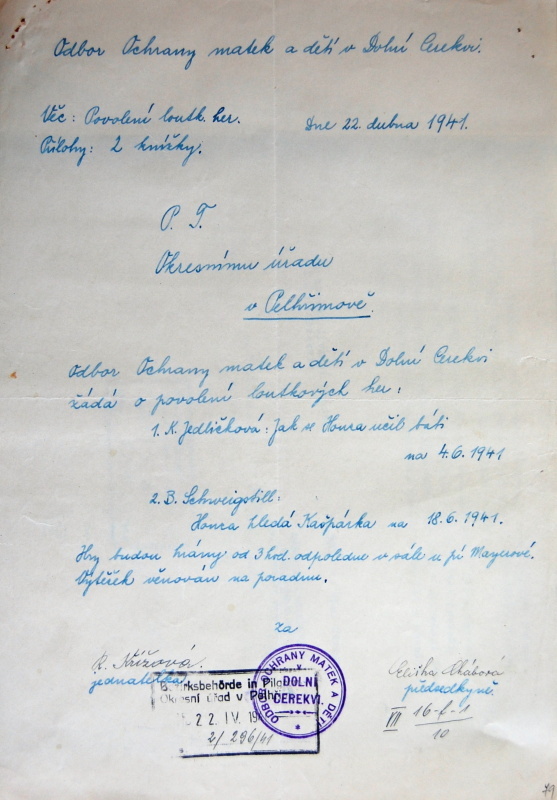 Odbor Ochrany matek a dětí v Dolní Cerekvi.
Věc: Povolení loutk. her.
Dne 22. dubna 1941.
Přílohy: 2 knížky.
P. T.
Okresnímu úřadu
v Pelhřimově.
Odbor Ochrany matek a dětí v Dolní Cerekvi
žádá o povolení loutkových her:
1. K. Jedličková: Jak se Honza učil báti
na 4.6.1941
2. B. Schweigstill:
Honza hledá Kašpárka na 18.6.1941.
Hry budou hrány od 3 hod. odpoledne v sále u pí Mayerové.
Výtěžek věnován na poradnu.
Za
R. Křížová.
jednatelka
ODBOR OCHRANY MATEK A DĚTÍ
DOLNÍ
CEREKVI.
Bezirksbehörde in Pilg
Okresní úřad v Pelhř
22. IV. 19
2/ 296/41
předsedkyně.
VII 16-f-1
10
79